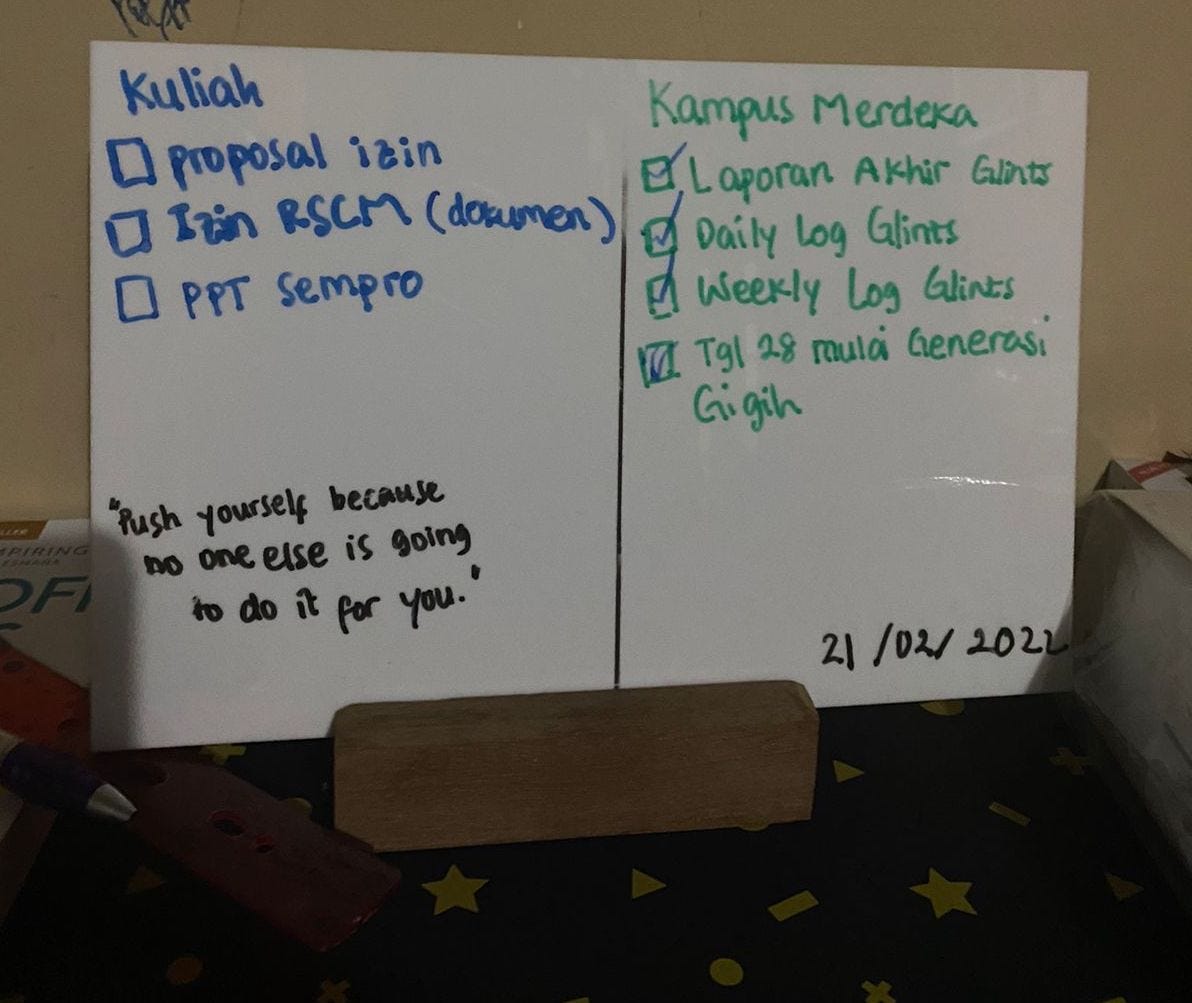 Kuliah
proposal izin
Izin RSCM (dokumen)
PPT Sempro
"Push yourself because
no one else is going
to do it for you."
Kampus Merdeka
Laporan Akhir Glints
Daily Log Glints
Weekly Log Glints
Tgl 28 mulai Generasi
Gigih
21/02/2022